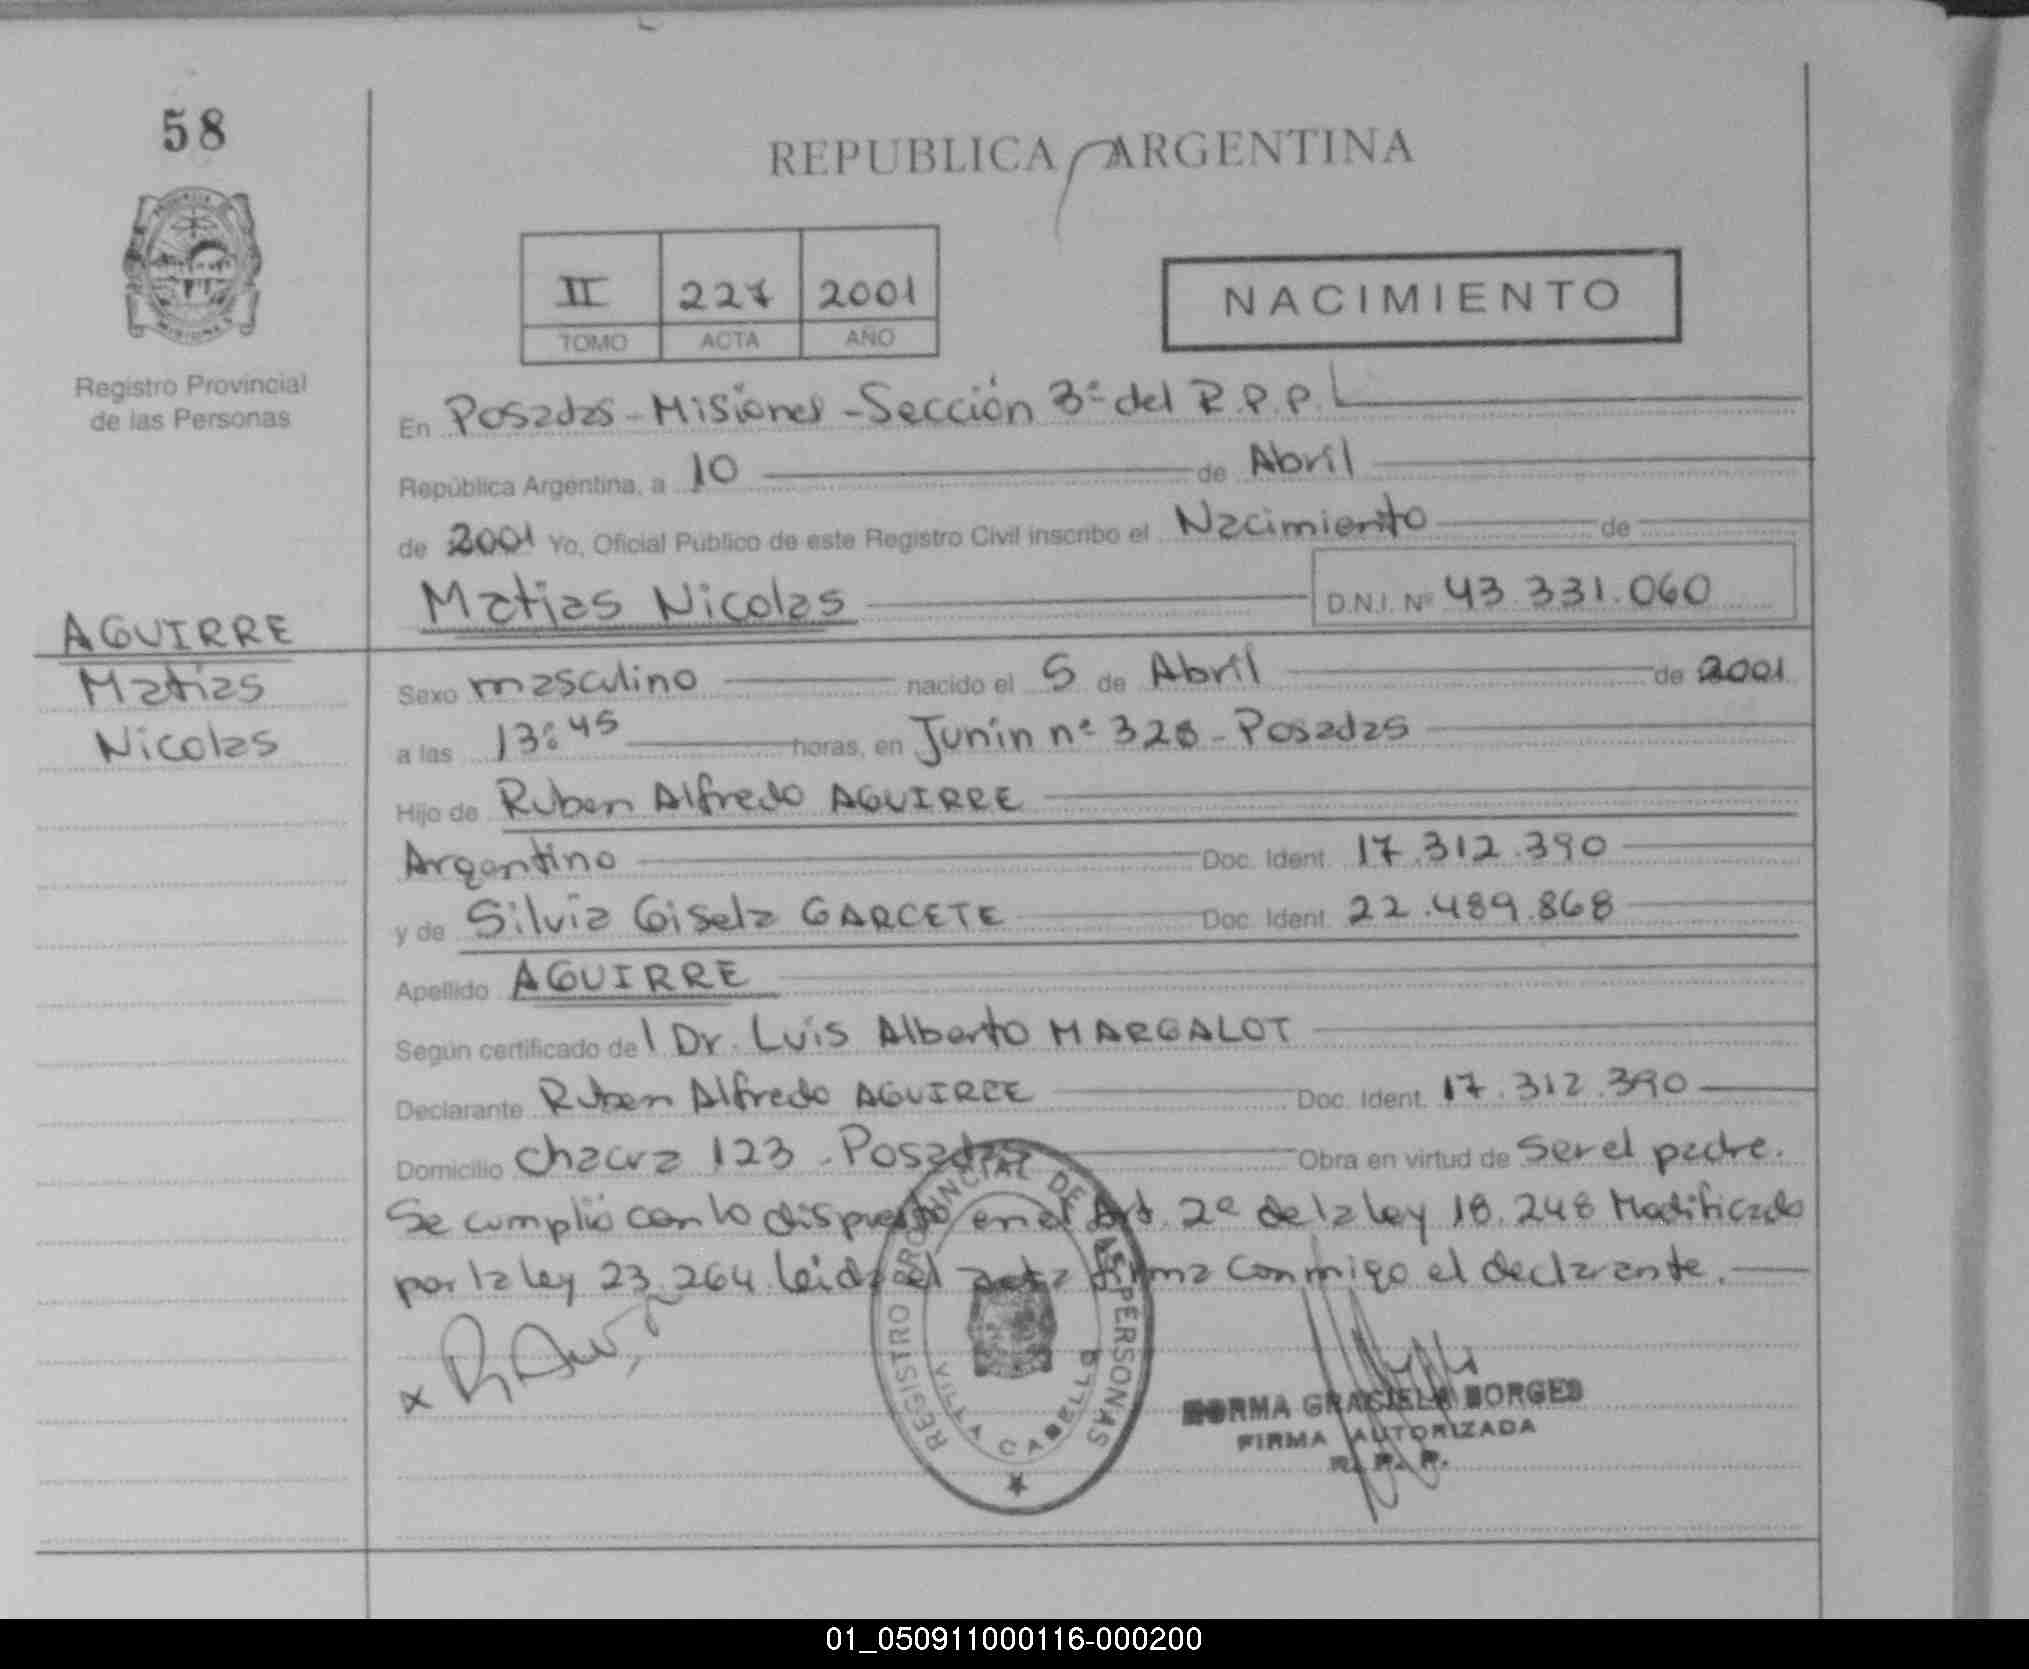 58
REPUBLICA ARGENTINA
II 227 2001
TOMO ACTA AÑO
NACIMIENTO
Registro Provincial
de las Personas
En Posadas - Misiones - Sección 3ª del R.P.P.
República Argentina, a 10 de Abril
de 2001 Yo, Oficial Público de este Registro Civil inscribo el Nacimiento de
Matias Nicolas D.N.I. Nº 43.331.060
AGUIRRE
Matias
Nicolas
Sexo masculino nacido el 5 de Abril de 2001
a las 13:45 horas, en Junín nº 328 - Posadas
Hijo de Ruben Alfredo AGUIRRE
Argentino Doc. Ident. 17.312.390
y de Silvia Gisela GARCETE Doc. Ident. 22.489.868
Apellido AGUIRRE
Según certificado del Dr. Luis Alberto MARGALOT
Declarante Ruben Alfredo AGUIRRE Doc. Ident. 17.312.390
Domicilio Chacra 123 - Posadas Obra en virtud de ser el padre.
Se cumplió con lo dispuesto en el Art. 2º de la ley 18.248 Modificado
por la ley 23.264 leida el acta firma conmigo el declarante.
REGISTRO PROVINCIAL DE LAS PERSONAS
VILLA CABELLO
NORMA GRACIELA BORGES
FIRMA AUTORIZADA
R. P. P.
01_050911000116-000200